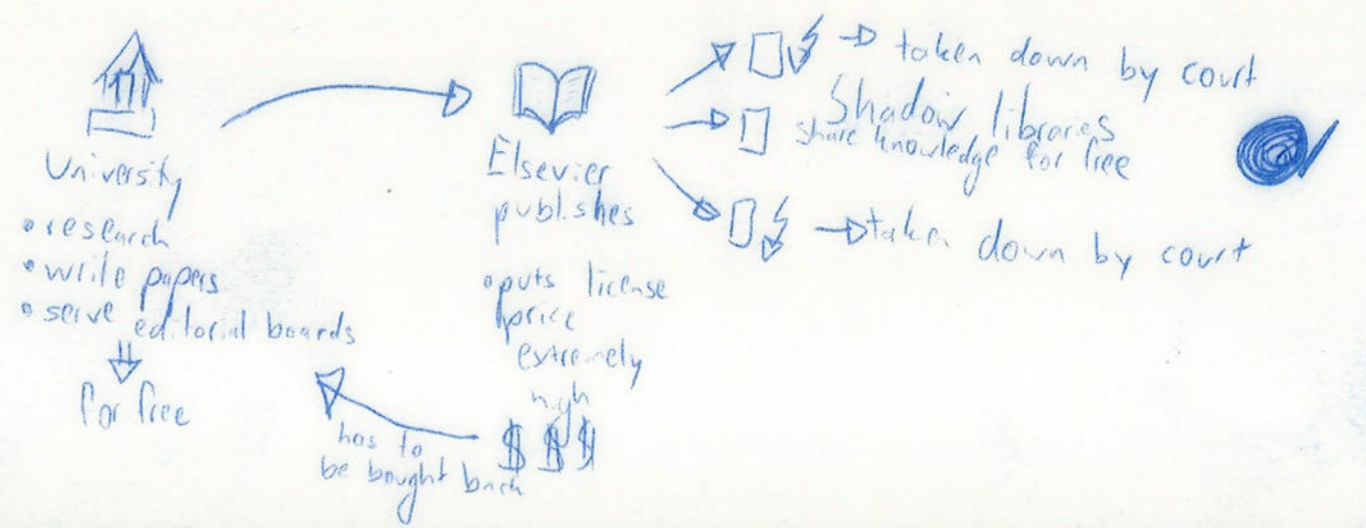 University
• research
• write papers
• serve editorial boards
for free
Elsevier
publishes
• puts license
price
extremely
high
$ $ $
has to
be bought back
taken down by court
Shadow libraries
share knowledge for free
taken down by court